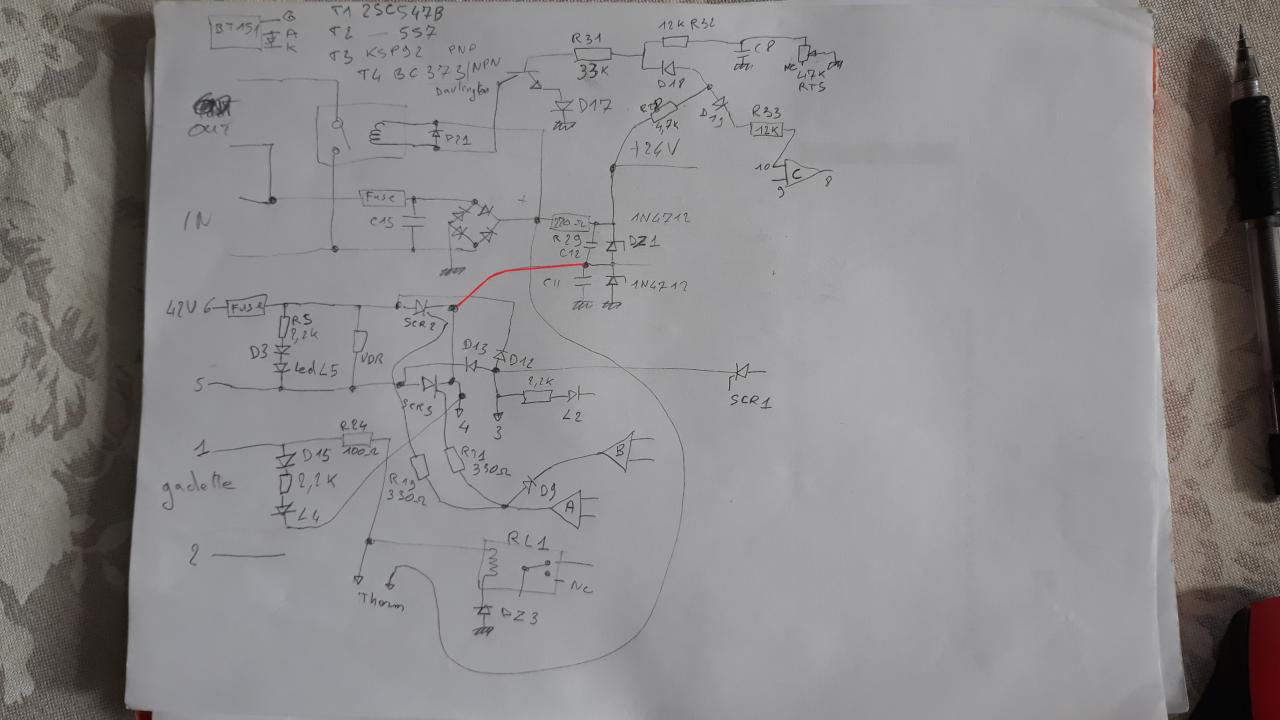 BT151
G
A
K
T1 2SC547B
T2 — 557
T3 KSP92 PNP
T4 BC373/NPN
Darlington
R31
33K
12K R32
C8
D18
NC
47K
RT5
D17
4,7K
D19
R33
12K
10
9
C
8
OUT
D21
+24V
IN
Fuse
C15
+
220Ω
R29
C12
1N4712
DZ1
C11
1N4712
42V 6
Fuse
R5
2,2K
D3
led L5
VDR
5
SCR2
D13
D12
SCR3
4
3
2,2K
L2
SCR1
1
gachette
R24
100Ω
D15
2,2K
L4
R19
330Ω
R21
330Ω
B
D9
A
2
Therm
RL1
NC
DZ3